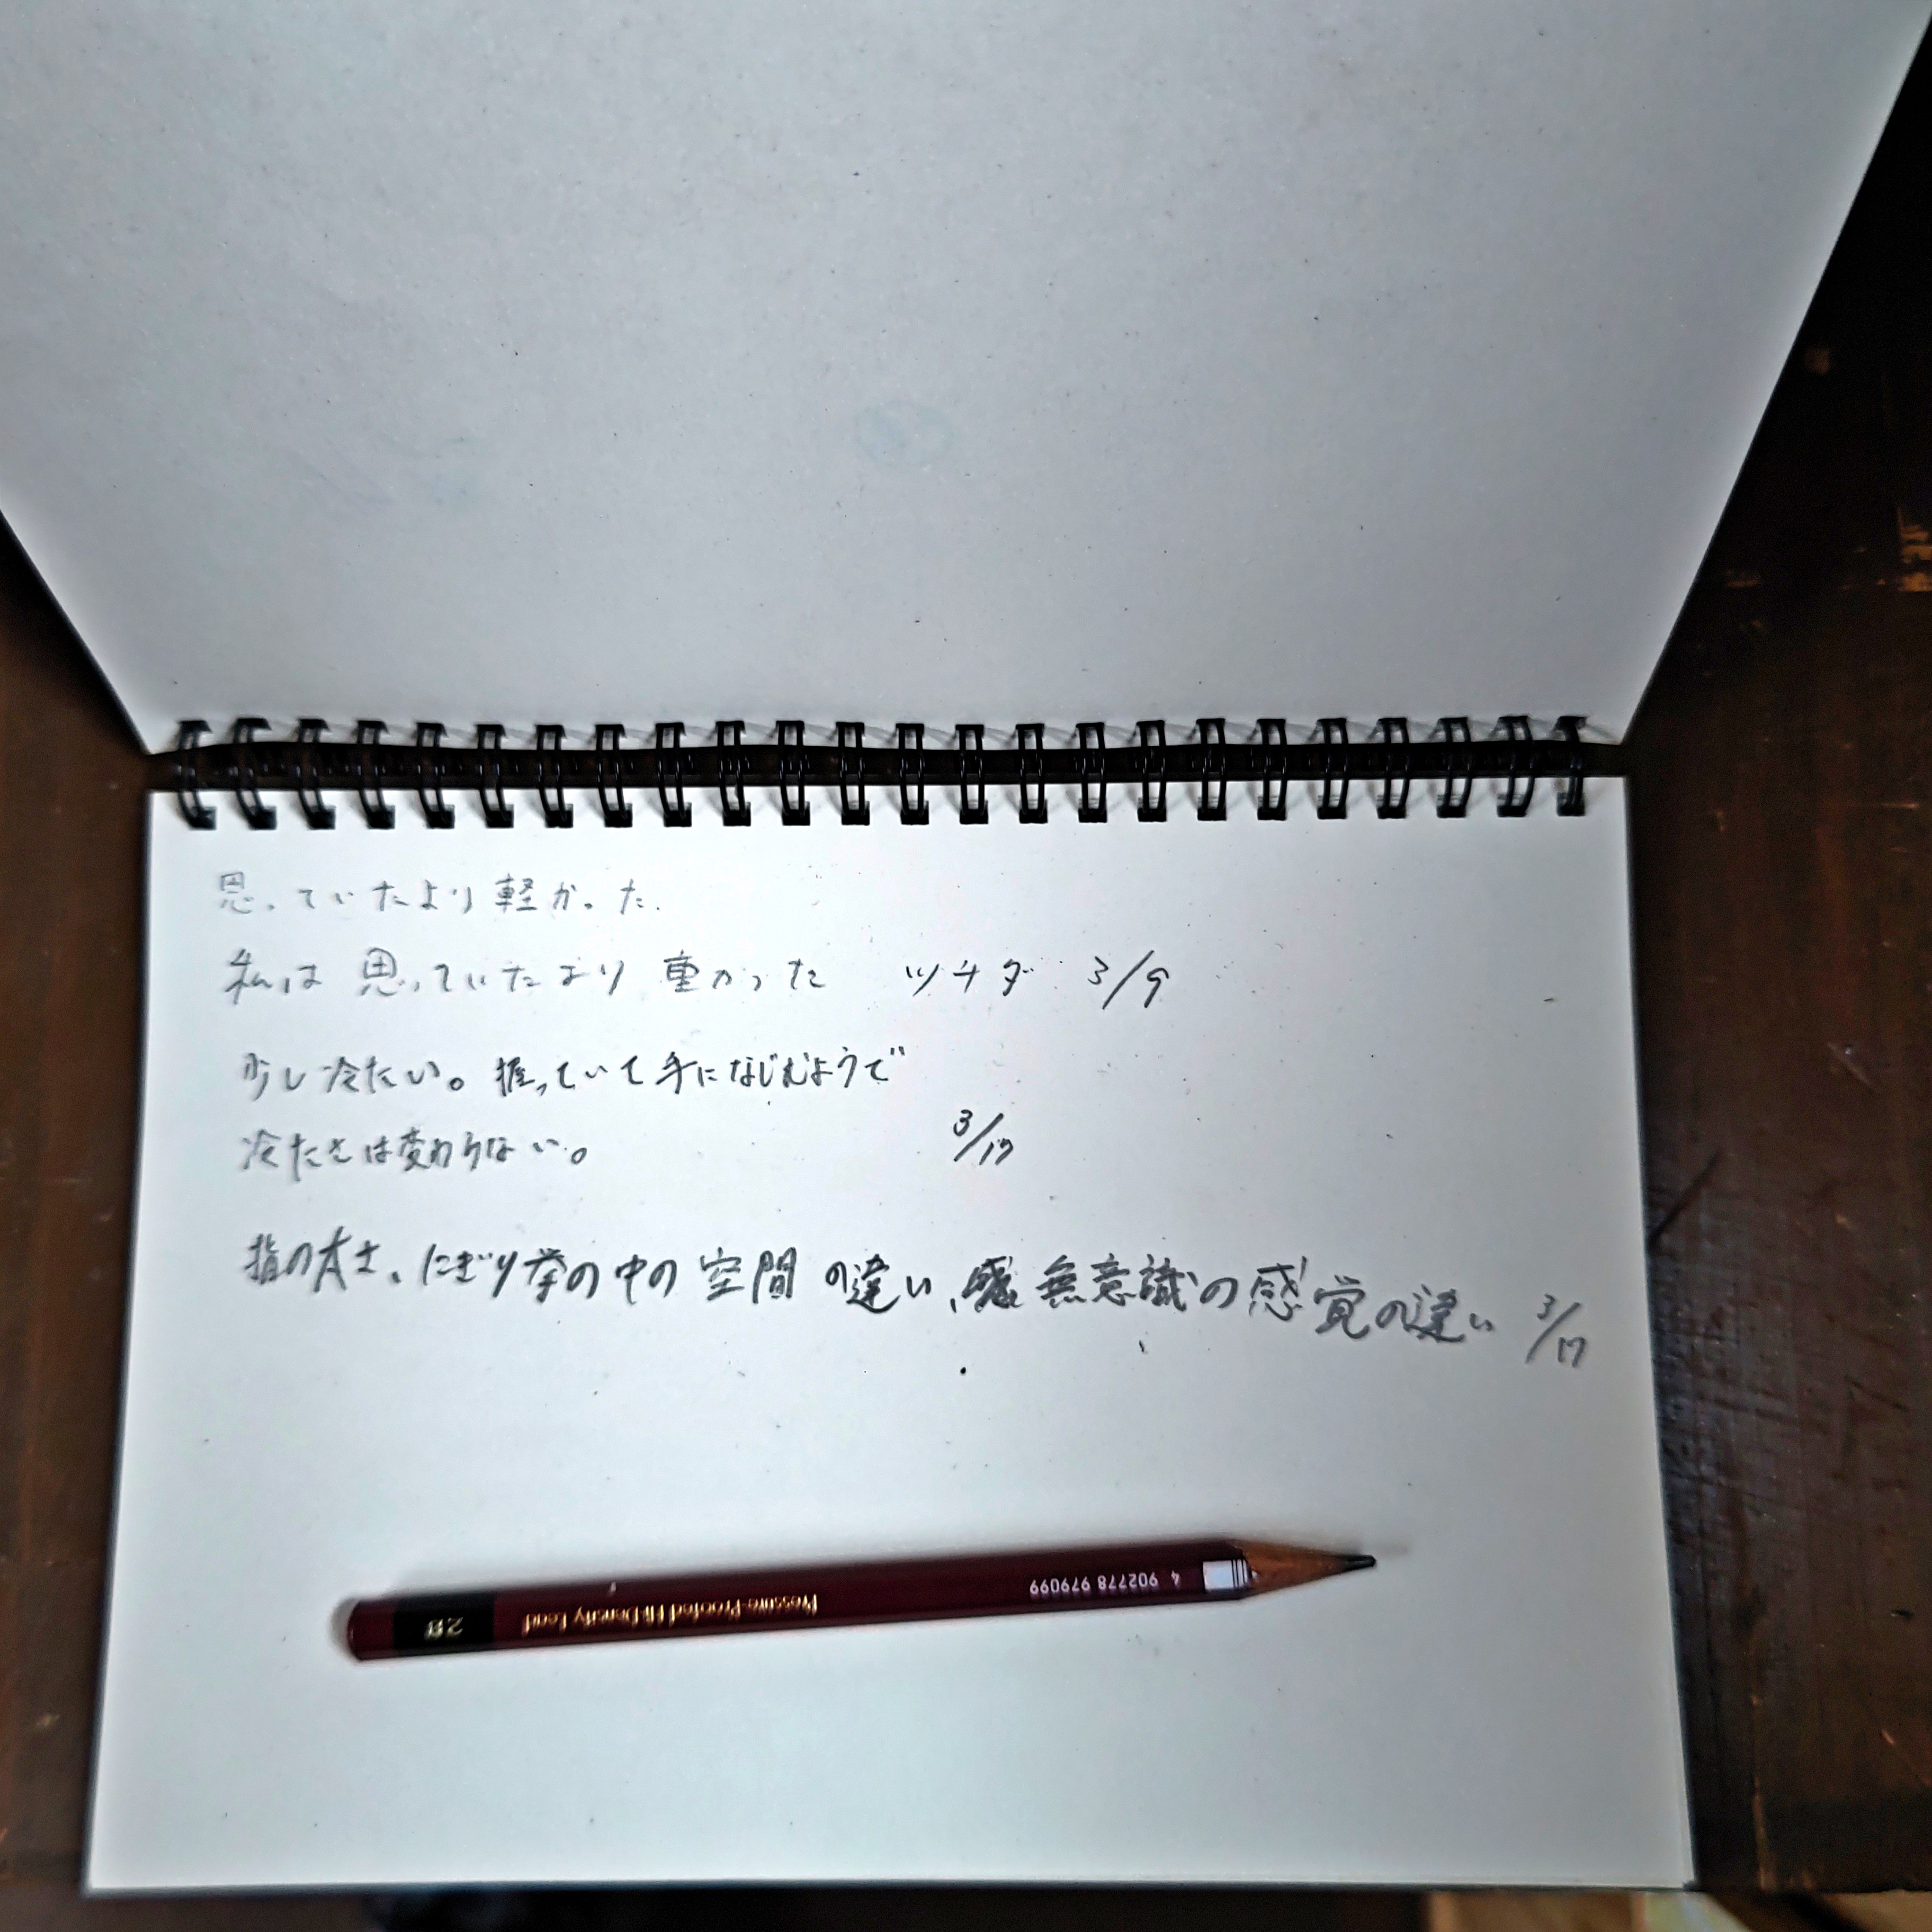 思っていたより軽かった.
私は 思っていたより 重かった ツチダ 3/9
少し冷たい。握っていて手になじむようで
冷たさは変わらない。 3/17
指の太さ、にぎり拳の中の空間の違い、無意識の感覚の違い 3/17
4 902778 979099
Pressure-Proofed Hi-Density Lead 2B